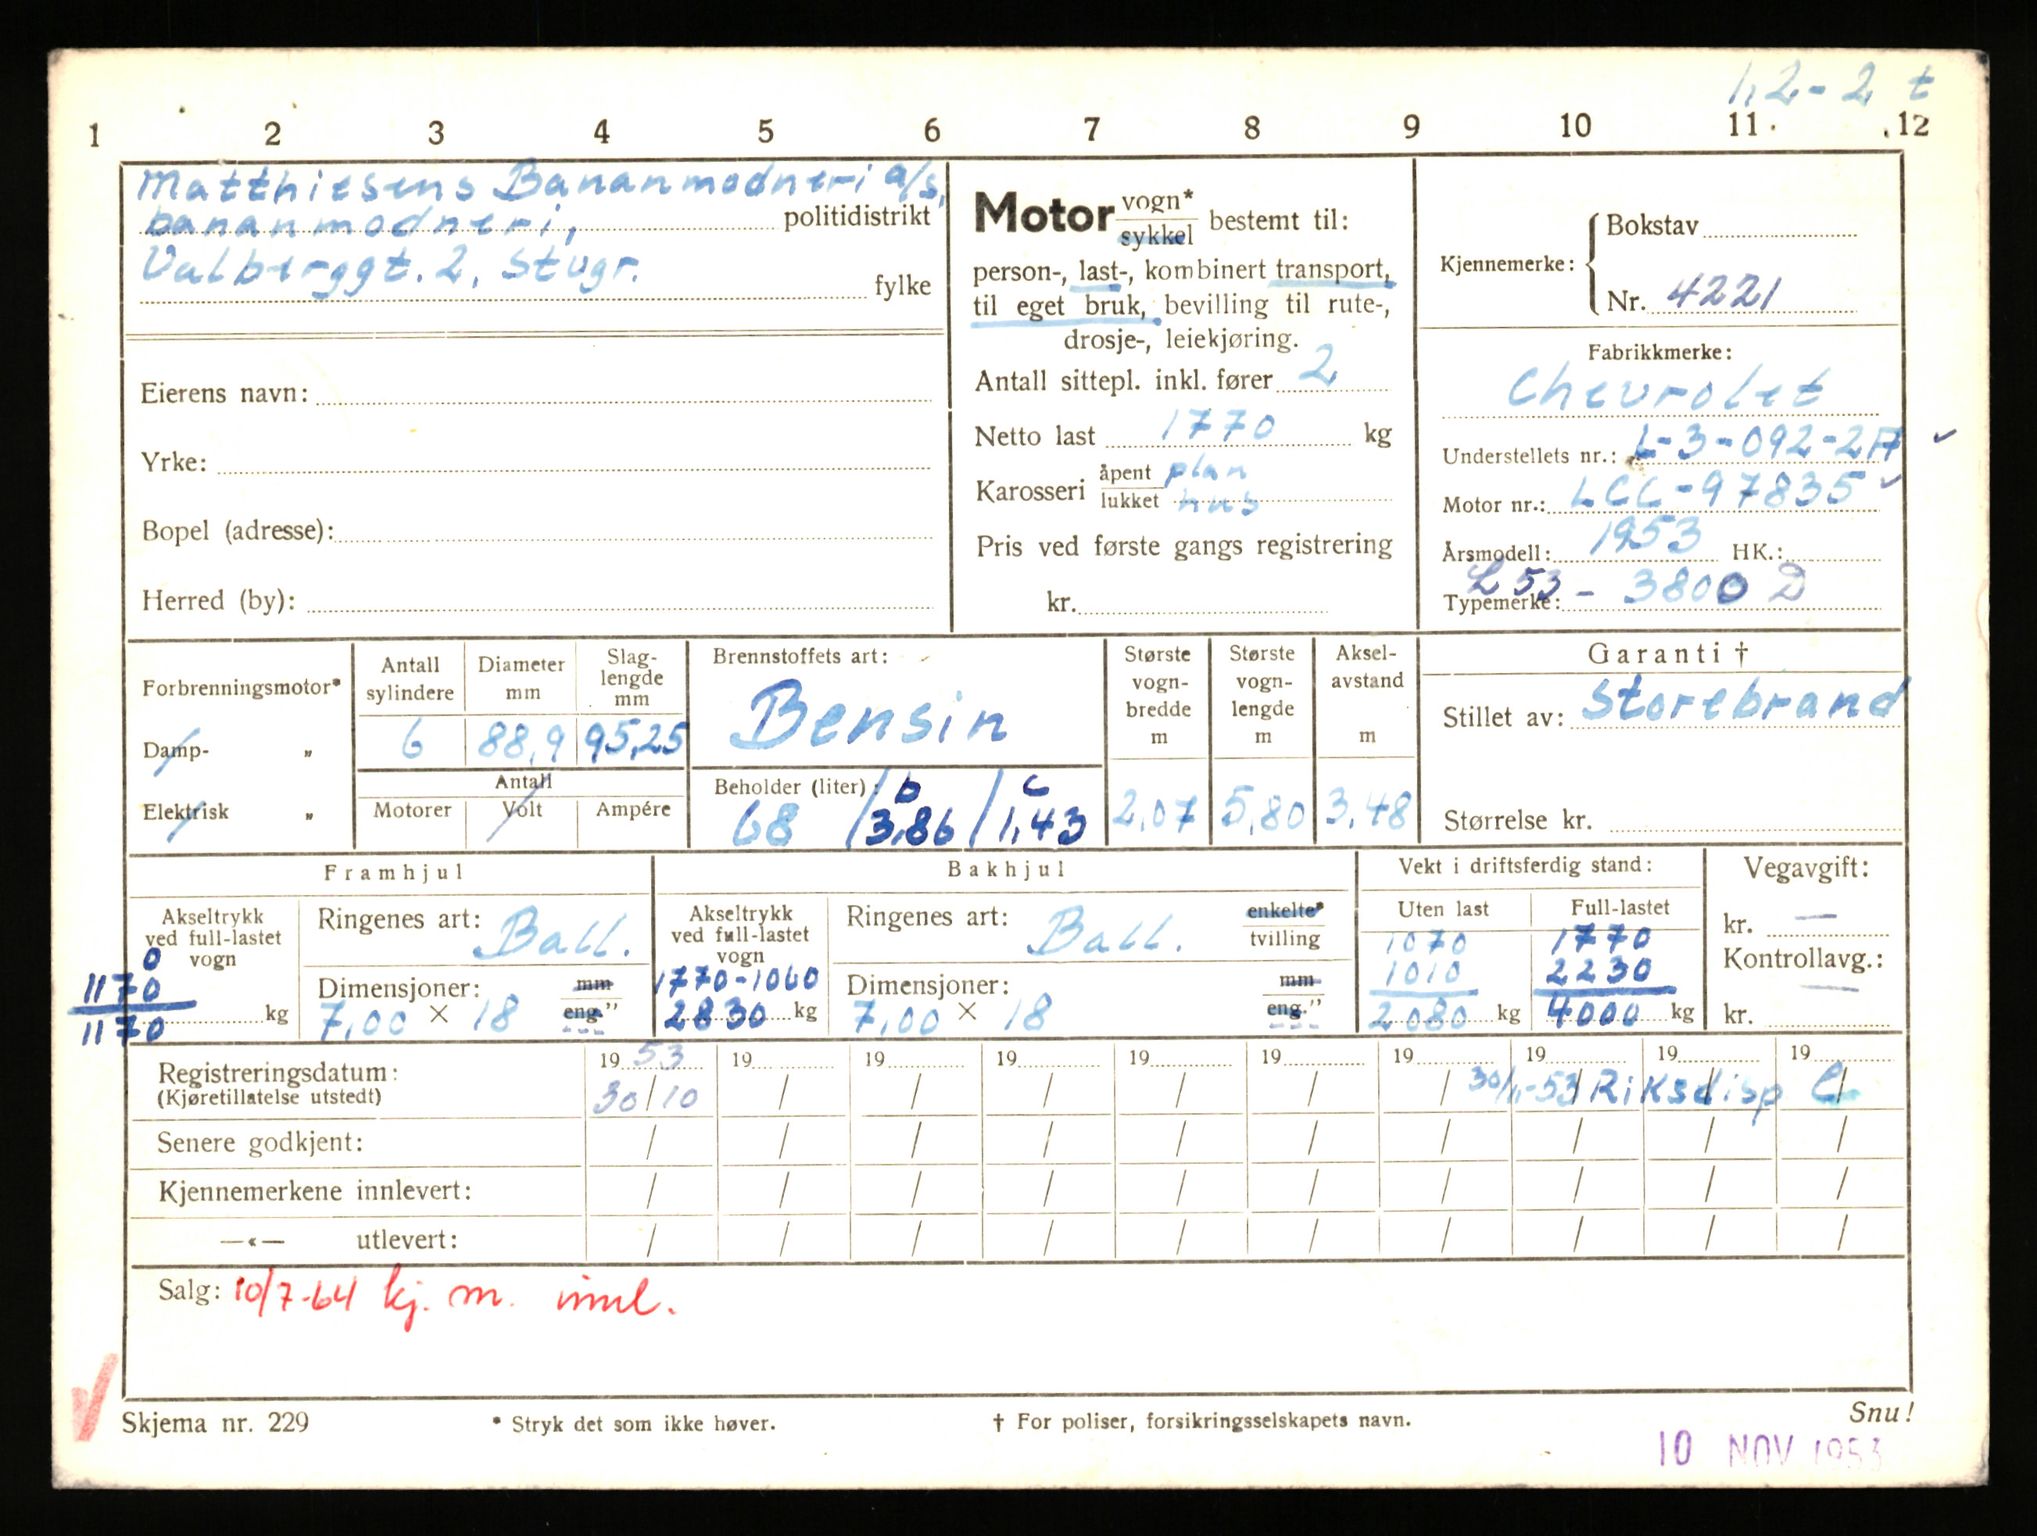 1,2-2 t
1 2 3 4 5 6 7 8 9 10 11 12
Matthiesens Bananmodneri a/s,
bananmodneri, politidistrikt
Valberggt. 2, Stvgr. fylke
Eierens navn:
Yrke:
Bopel (adresse):
Herred (by):
Motor vogn* sykkel bestemt til:
person-, last-, kombinert transport,
til eget bruk, bevilling til rute-,
drosje-, leiekjøring.
Antall sittepl. inkl. fører 2
Netto last 1770 kg
Karosseri åpent plan
lukket hus
Pris ved første gangs registrering
kr.
Kjennemerke: Bokstav
Nr. 4221
Fabrikkmerke:
Chevrolet
Understellets nr.: L-3-092-2A
Motor nr.: LCC-97835
Årsmodell: 1953 HK.:
Typemerke: L 53 - 3800 D
Forbrenningsmotor*
Damp- „
Elektrisk „
Antall sylindere 6
Diameter mm 88,9
Slag-lengde mm 95,25
Antall
Motorer Volt Ampére
Brennstoffets art:
Bensin
Beholder (liter): b c
68 /3,86 /1,43
Største vogn-bredde m 2,07
Største vogn-lengde m 5,80
Aksel-avstand m 3,48
Garanti †
Stillet av: Storebrand
Størrelse kr.
Framhjul
Akseltrykk ved full-lastet vogn
0
1170
1170 kg
Ringenes art: Ball.
Dimensjoner: mm
7,00 × 18 eng."
Bakhjul
Akseltrykk ved full-lastet vogn
1770-1060
2830 kg
Ringenes art: Ball. enkelte* tvilling
Dimensjoner: mm
7,00 × 18 eng."
Vekt i driftsferdig stand:
Uten last Full-lastet
1070 1770
1010 2230
2080 kg 4000 kg
Vegavgift:
kr. —
Kontrollavg.:
—
kr.
Registreringsdatum: 19 53 19 19 19 19 19 19 19 19 19
(Kjøretillatelse utstedt) 30/10 / / / / / / 30/1-53 Riksdisp
Senere godkjent: / / / / / / / / / /
Kjennemerkene innlevert: / / / / / / / / / /
—«— utlevert: / / / / / / / / / /
Salg: 10/7-64 kj. m. innl.
Skjema nr. 229 * Stryk det som ikke høver. † For poliser, forsikringsselskapets navn. Snu!
10 NOV 1953